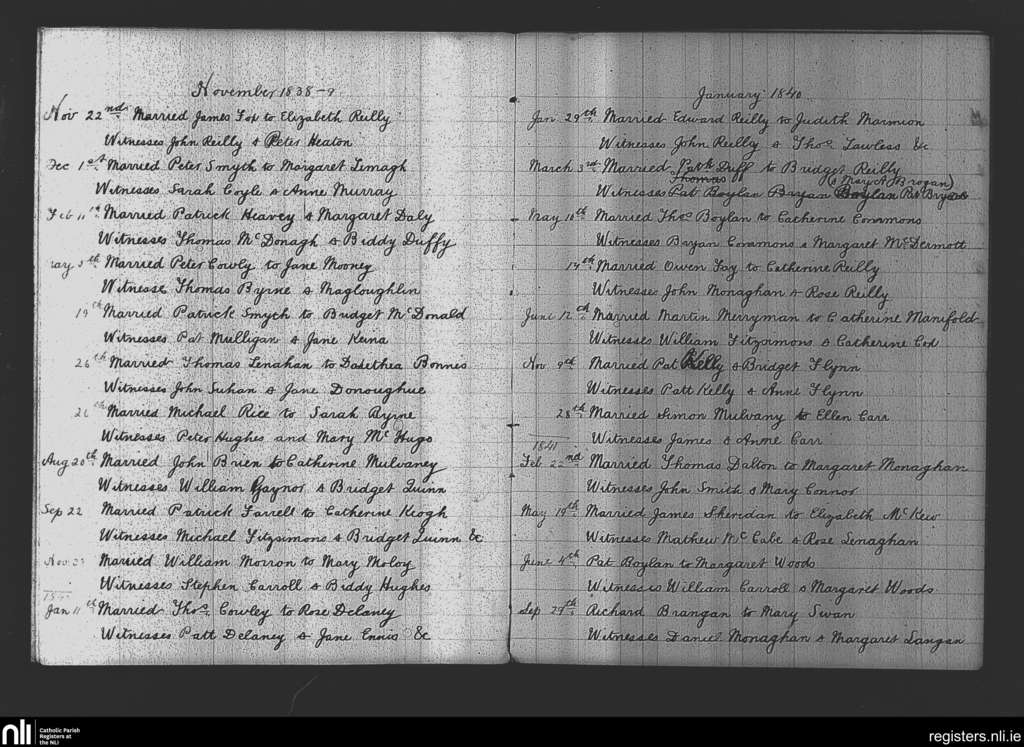 November 1838-9
Nov 22nd. Married James Fox to Elizabeth Reilly
Witnesses John Reilly & Peter Heaton
Dec 1st. Married Peter Smyth to Margaret Limagh
Witnesses Sarah Coyle & Anne Murray
Feb 11th Married Patrick Heavey & Margaret Daly
Witnesses Thomas McDonagh & Biddy Duffy
May 5th Married Peter Cowly to Jane Mooney
Witnesse Thomas Byrne & Magloughlin
19th Married Patrick Smyth to Bridget McDonald
Witnesses Pat Mulligan & Jane Keina
26th Married Thomas Lenahan to Dasethea Bonnes
Witnesses John Suhan & Jane Donoughue
26th Married Michael Rice to Sarah Byrne
Witnesses Peter Hughes and Mary McHugo
Aug 20th. Married John Brien to Catherine Mulvaney
Witnesses William Gaynor & Bridget Quinn
Sep 22 Married Patrick Farrell to Catherine Keogh
Witnesses Michael Fitzsimons & Bridget Quinn &c
Nov Married William Moiron to Mary Moloy
Witnesses Stephen Carroll & Biddy Hughes
Jan 11th Married Thos. Cowley to Rose Delaney
Witnesses Patt Delaney & Jane Ennis &c
January 1840
Jan 29th. Married Edward Reilly to Judith Marmion
Witnesses John Reilly & Thos. Lawless &c
March 3rd. Married Patk Duff to Bridget Reilly
Thomas (& Mary A Brogan)
Witnesses Pat Boylan Bryan Boylan Pat Bryan
May 10th. Married Thos Boylan to Catherine Commons
Witnesses Bryan Commons & Margaret McDermott
14th Married Owen Fay to Catherine Reilly
Witnesses John Monaghan & Rose Reilly
June 12th. Married Martin Merryman to Catherine Manifold
Witnesses William Fitzsimons & Catherine Cod
Nov 9th Married Pat Kelly & Bridget Flynn
Witnesses Patt Kelly & Anne Flynn
28th Married Simon Mulvany to Ellen Carr
Witnesses James & Anne Carr
1841
Feb 22nd. Married Thomas Dalton to Margaret Monaghan
Witnesses John Smith & Mary Connor
May 19th. Married James Sheridan to Elizabeth McKew
Witnesses Mathew McCabe & Rose Lenaghan
June 4th. Pat Boylan to Margaret Woods
Witnesses William Carroll & Margaret Woods
Sep 29th. Richard Brangan to Mary Swan
Witnesses Daniel Monaghan & Margaret Langan
nli Catholic Parish
Registers at
the NLI
registers.nli.ie